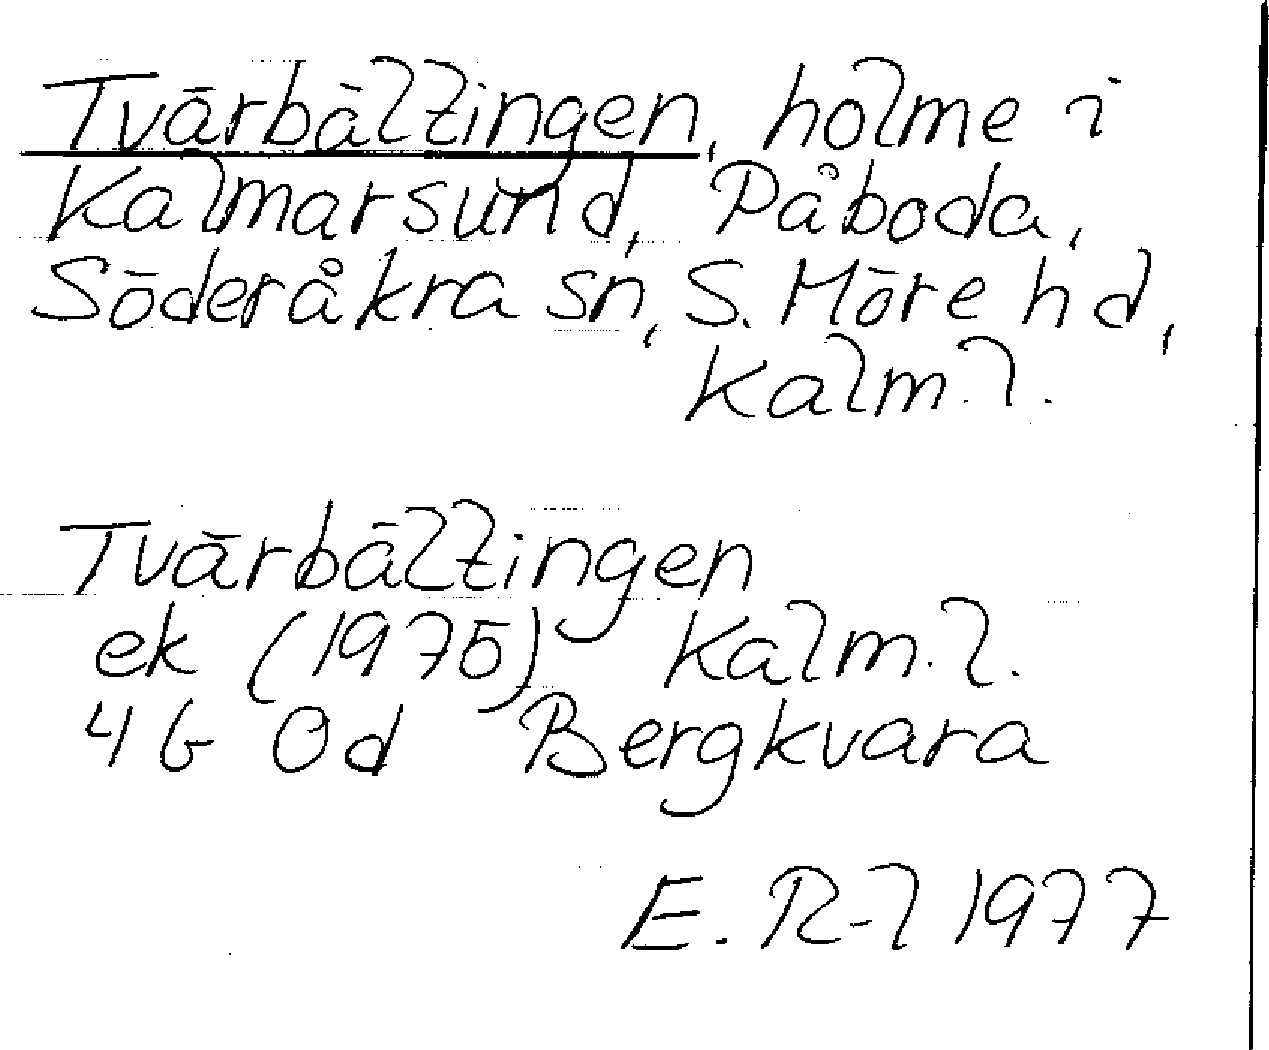 Tvärbältingen, holme i
Kalmarsund, Påboda,
Söderåkra sn, S. Möre hd,
Kalm. l.
Tvärbältingen
ek (1975) Kalm. l.
4G 0d Bergkvara
E. R-l 1977